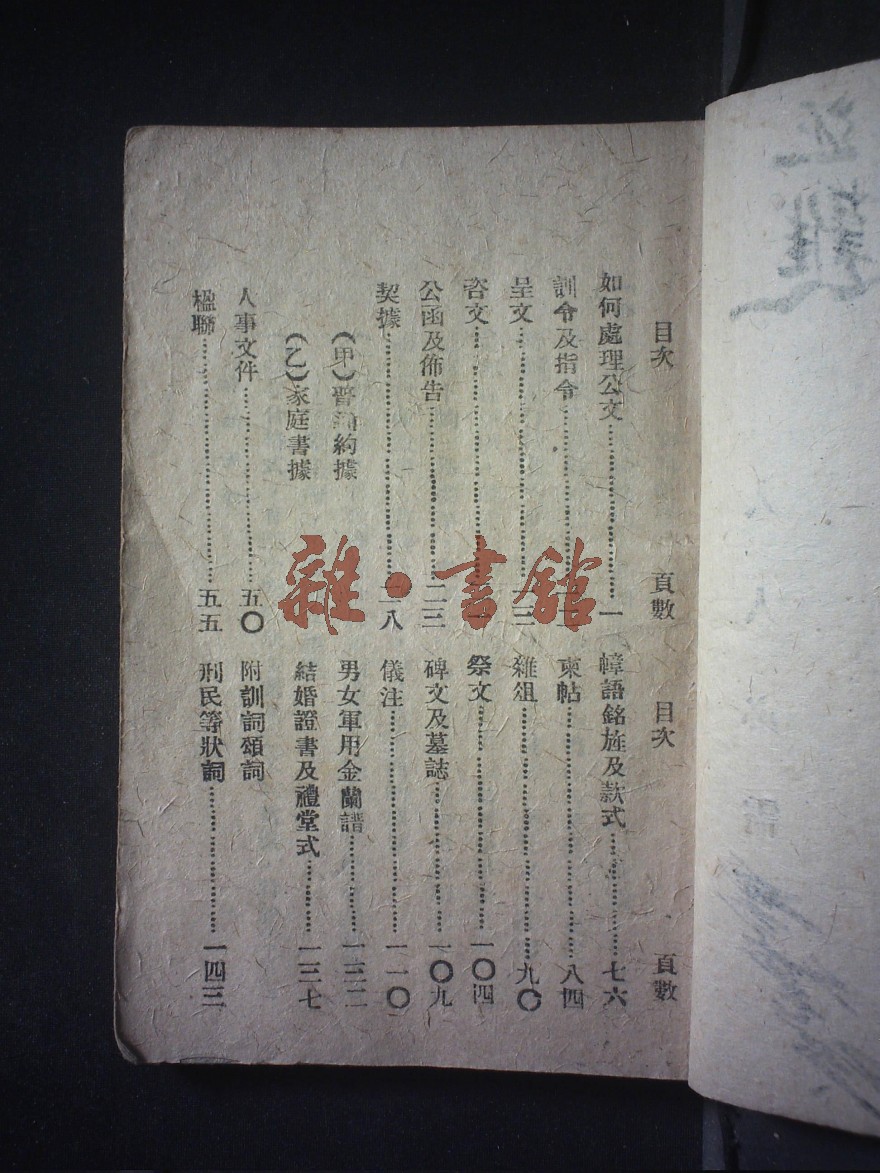 目次 頁數
如何處理公文 一
訓令及指令
呈文 一三
咨文
公函及佈告 二三
契據 二八
(甲)普通約據
(乙)家庭書據
人事文件 五〇
楹聯 五五
目次 頁數
幛語銘旌及款式 七六
柬帖 八四
雜俎 九〇
祭文 一〇四
碑文及墓誌 一〇九
儀注 一一〇
男女軍用金蘭譜 一三二
結婚證書及禮堂式 一三七
附訓詞頌詞
刑民等狀詞 一四三
雜·書館